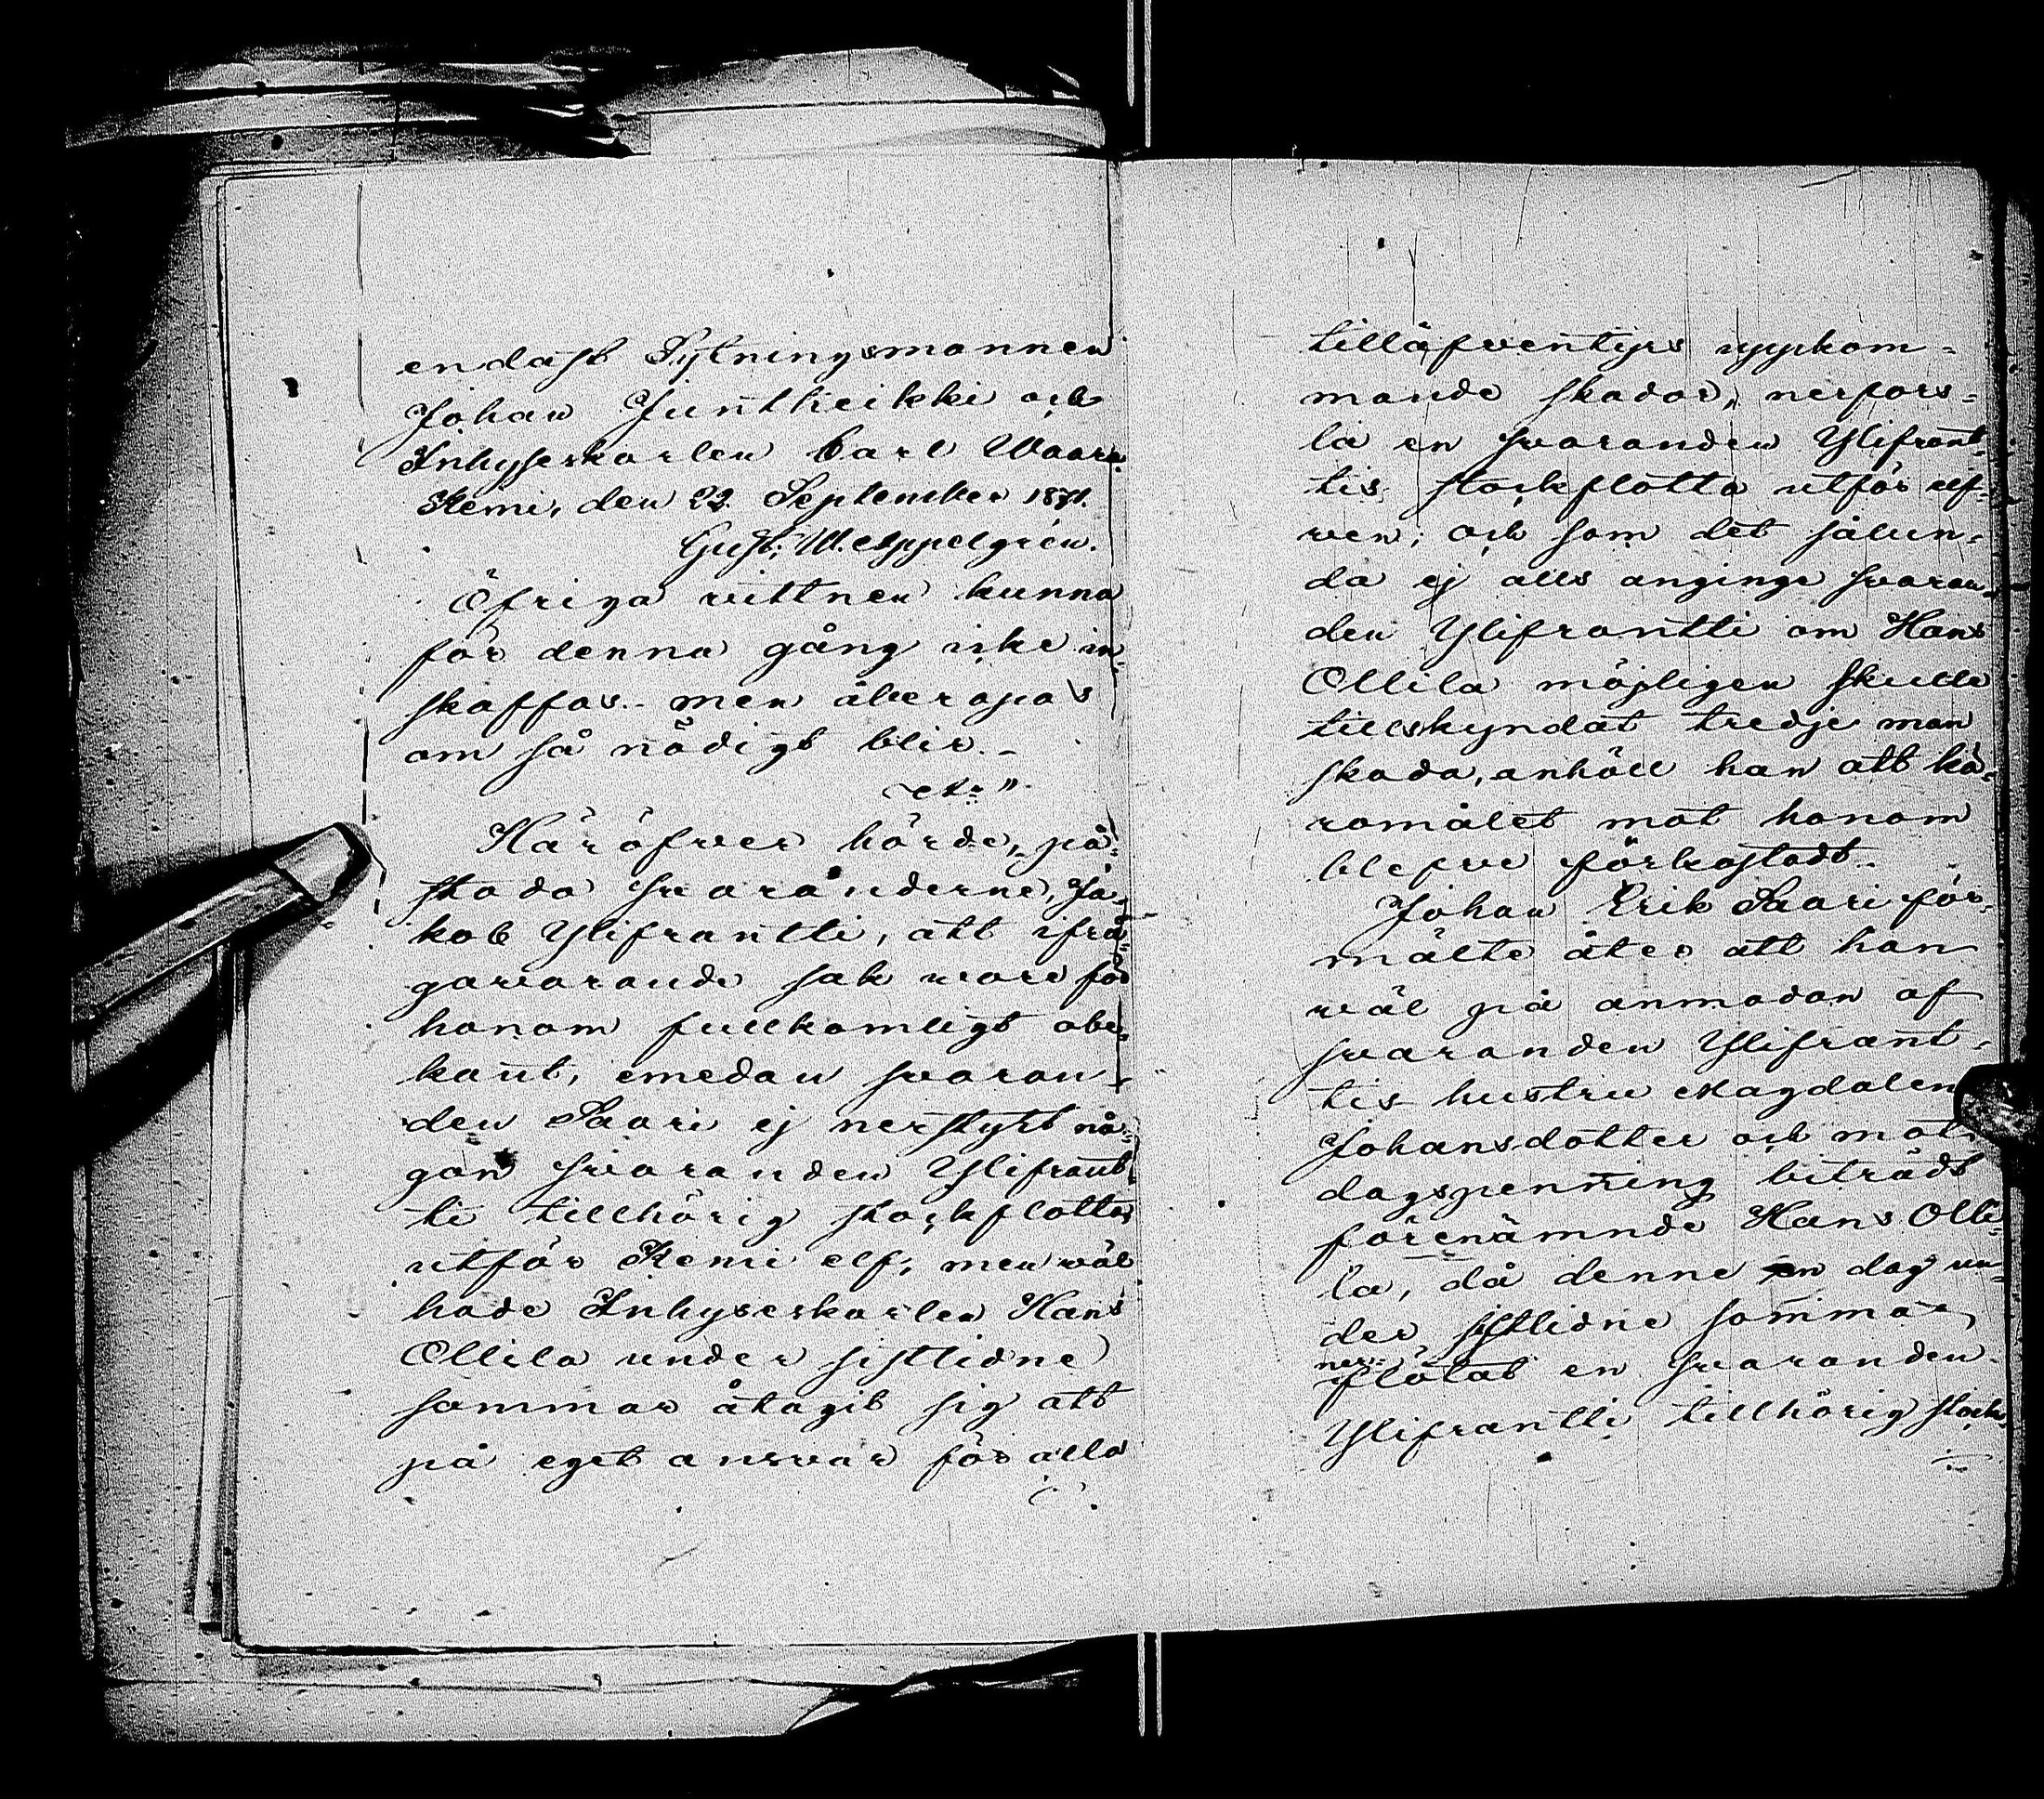 endast Sytningsmannen
Johan Juntheikki och
Inhyseskarlen Carl Waara.
Kemi, den 22 September 1871.
Gust: W. Appelgrén.
Öfriga vittnen kunna
för denna gång icke in-
skaffas. men åberopas
om så nödigt blir. _
Häröfver hörde, på-
stodo svaranderne, Ja-
kob Ylifrantti, att ifrå-
gavarande sak vore för
honom fullkomligt obe-
kant, emedan svaran-
den Saari ej nerstyrt nå-
gon svaranden Ylifrant-
ti tillhörig stockflotte
utför Kemi elf, men väl
hade Inhyseskarlen Hans
Ollila under sistlidne
sommar åtagit sig att
på eget ansvar för alla
tilläfventyrs uppkom-
mande skador, nerfors-
la en svaranden Ylifrant-
tis stockflotta utför elf-
ven; och som det sålun-
da ej alls anginge svaran-
den Ylifrantti om Hans
Ollila möjligen skulle
tillskyndat tredje man
skada, anhöll han att kä-
romålet mot honom
blefve förkastadt.
Johan Erik Saari för-
mälte åter att han
väl på anmodan af
svaranden Ylifrant-
tis hustru Magdalena
Johansdotter och mot
dagspenning biträdt
förenämnde Hans Olli-
la, då denne en dag un-
der sistlidne sommar
ner-
flötat en svaranden
Ylifrantti tillhörig stock-